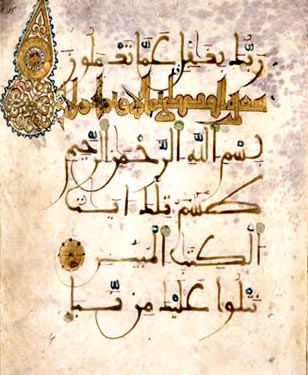 ربك بغفل عما تعملون
سورة القصص
بسم الله الرحمن الرحيم
طسم تلك ايت
الكتب المبين
نتلوا عليك من نبا